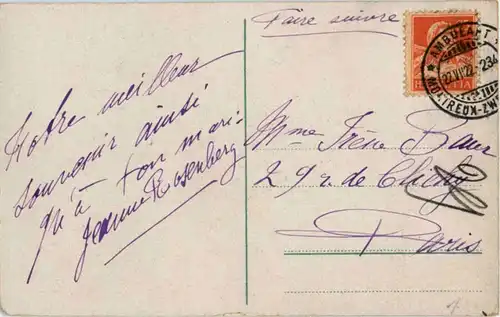 Faire suivre
Notre meilleur
souvenir ainsi
qu'à ton mari.
Jeanne Rosenberg
Mme Irène Baur
29 r. de Clichy
Paris
AMBULANT
27.VII.22
234
MONTREUX-ZW
HELVETIA